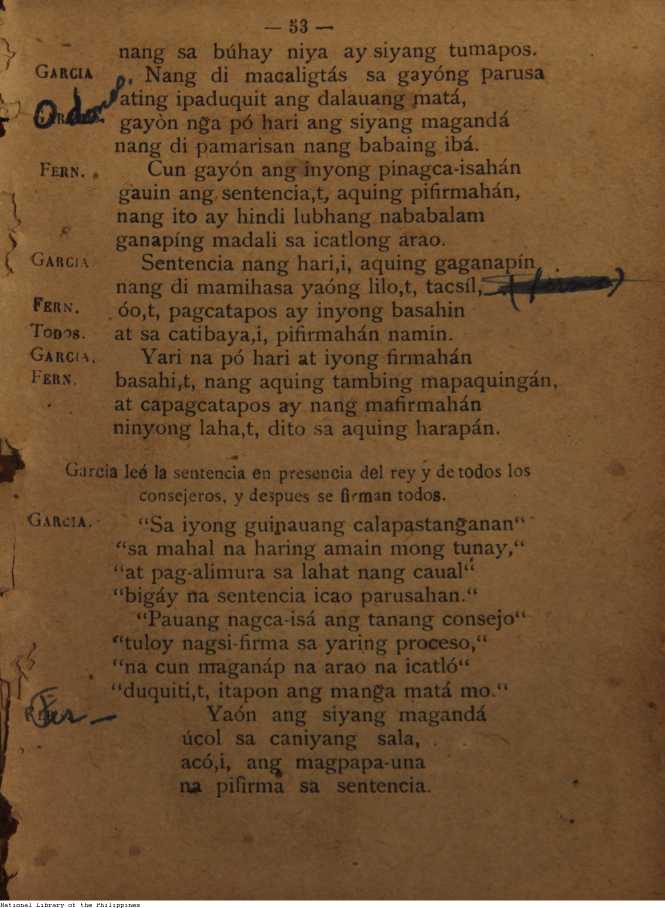 — 53 —
nang sa búhay niya ay siyang tumapos.
GARCIA. Nang di macaligtás sa gayóng parusa
ating ipaduquit ang dalauang matá,
gayòn ng̃a pó hari ang siyang magandá
nang di pamarisan nang babaing ibá.
FERN. Cun gayón ang inyong pinagca-isahán
gauin ang sentencia,t, aquing pifirmahán,
nang ito ay hindi lubhang nababalam
ganapíng madali sa icatlong arao.
GARCIA Sentencia nang hari,i, aquing gaganapín
nang di mamihasa yaóng lilo,t, tacsíl,
FERN. óo,t, pagcatapos ay inyong basahin
TODOS. at sa catibaya,i, pifirmahán namin.
GARCIA. Yari na pó hari at iyong firmahán
FERN. basahi,t, nang aquing tambing mapaquingán,
at capagcatapos ay nang mafirmahán
ninyong laha,t, dito sa aquing harapán.
Garcia leé la sentencia en presencia del rey y de todos los
consejeros, y despues se firman todos.
GARCIA. “Sa iyong guinauang calapastang̃anan“
“sa mahal na haring amain mong tunay,“
“at pag-alimura sa lahat nang caual“
“bigáy na sentencia icao parusahan.“
“Pauang nagca-isá ang tanang consejo“
“tuloy nagsi-firma sa yaring proceso,“
“na cun maganáp na arao na icatló“
“duquiti,t, itapon ang mang̃a matá mo.“
Fer — Yaón ang siyang magandá
úcol sa caniyang sala,
acó,i, ang magpapa-una
na pifirma sa sentencia.
National Library of the Philippines